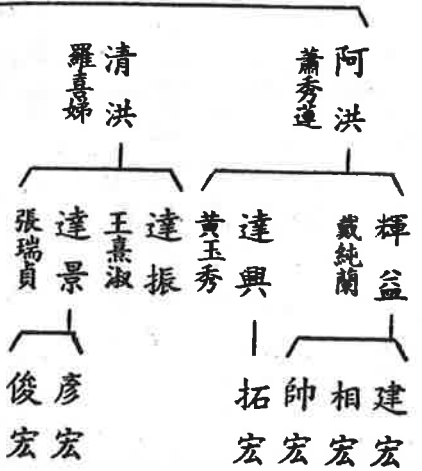 阿洪
蕭秀蓮
清洪
羅喜娣
輝益
戴純蘭
達興
黃玉秀
達振
王熹淑
達景
張瑞貞
建宏
相宏
帥宏
拓宏
彥宏
俊宏